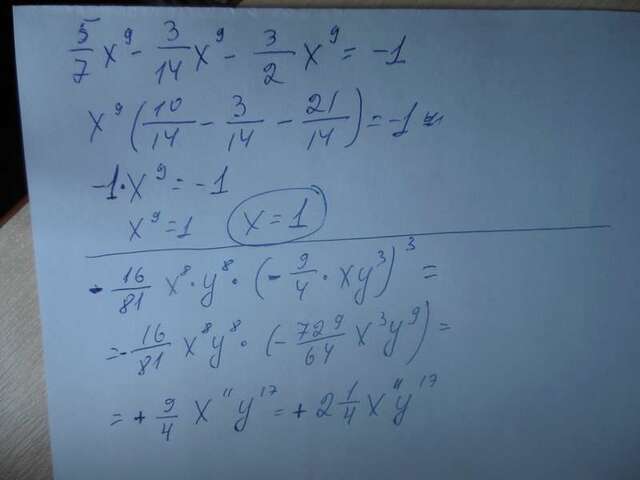 5/7 x⁹ - 3/14 x⁹ - 3/2 x⁹ = -1
x⁹ (10/14 - 3/14 - 21/14) = -1
-1·x⁹ = -1
x⁹ = 1 x = 1
- 16/81 x⁸·y⁸·(- 9/4 · xy³)³ =
= - 16/81 x⁸y⁸·(- 729/64 x³y⁹) =
= + 9/4 x¹¹y¹⁷ = + 2 1/4 x¹¹y¹⁷